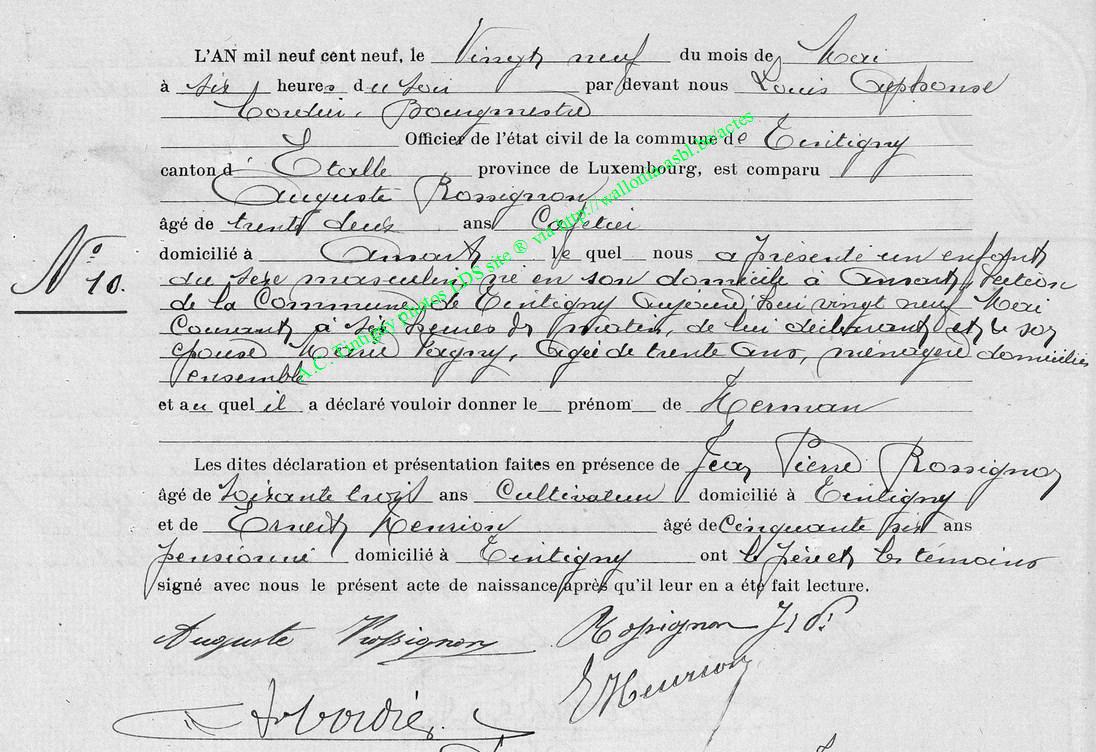 L'AN mil neuf cent neuf, le Vingt neuf du mois de Mai
à six heures du soir par devant nous Louis Alphonse
Bourgmestre
Officier de l'état civil de la commune de Tintigny
canton d' Etalle province de Luxembourg, est comparu
Auguste Rossignon
âgé de trente deux ans Cafetier
domicilié à Ansart le quel nous a présenté un enfant
N° 10.
du sexe masculin, né en son domicile à Ansart, section
de la Commune de Tintigny aujourd'hui vingt neuf Mai
Courant à six heures du matin, de lui déclarant et de son
épouse Marie, âgée de trente ans, ménagère domiciliés
ensemble
et au quel il a déclaré vouloir donner le prénom de Herman
Les dites déclaration et présentation faites en présence de Jean Pierre Rossignon
âgé de soixante trois ans Cultivateur domicilié à Tintigny
et de Ernest Henrion âgé de Cinquante six ans
pensionné domicilié à Tintigny ont le père et les témoins
signé avec nous le présent acte de naissance après qu'il leur en a été fait lecture.
Auguste Rossignon Rossignon J. P.
E Henrion
A.C. Tintigny photos LDS site ® via http://wallonia-asbl.be/actes